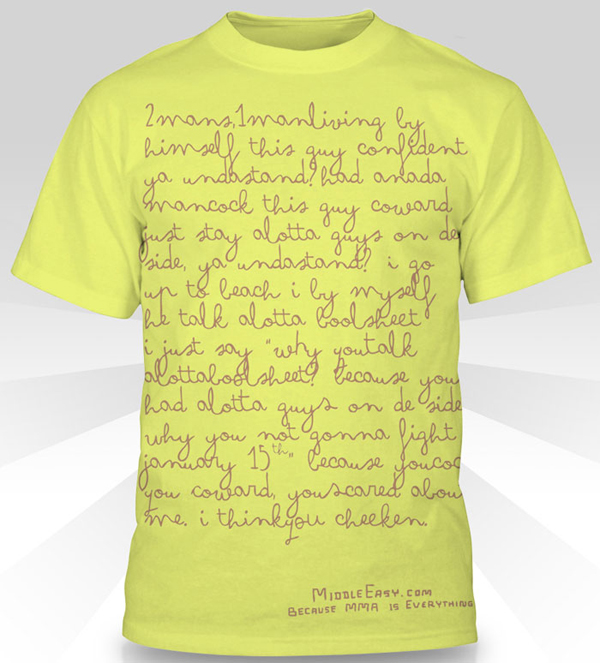 2mans,1manliving by
himself this guy confident
ya undastand? had anada
mancock this guy coward
just stay alotta guys on de
side, ya undastand? i go
up to beach i by myself
he talk alotta boolsheet
i just say "why youtalk
alottaboolsheet? because you
had alotta guys on de side
why you not gonna fight
january 15th" because youcoc
you coward, youscared abou
me. i thinkyou cheeken.
MiddleEasy.com
Because MMA is Everything